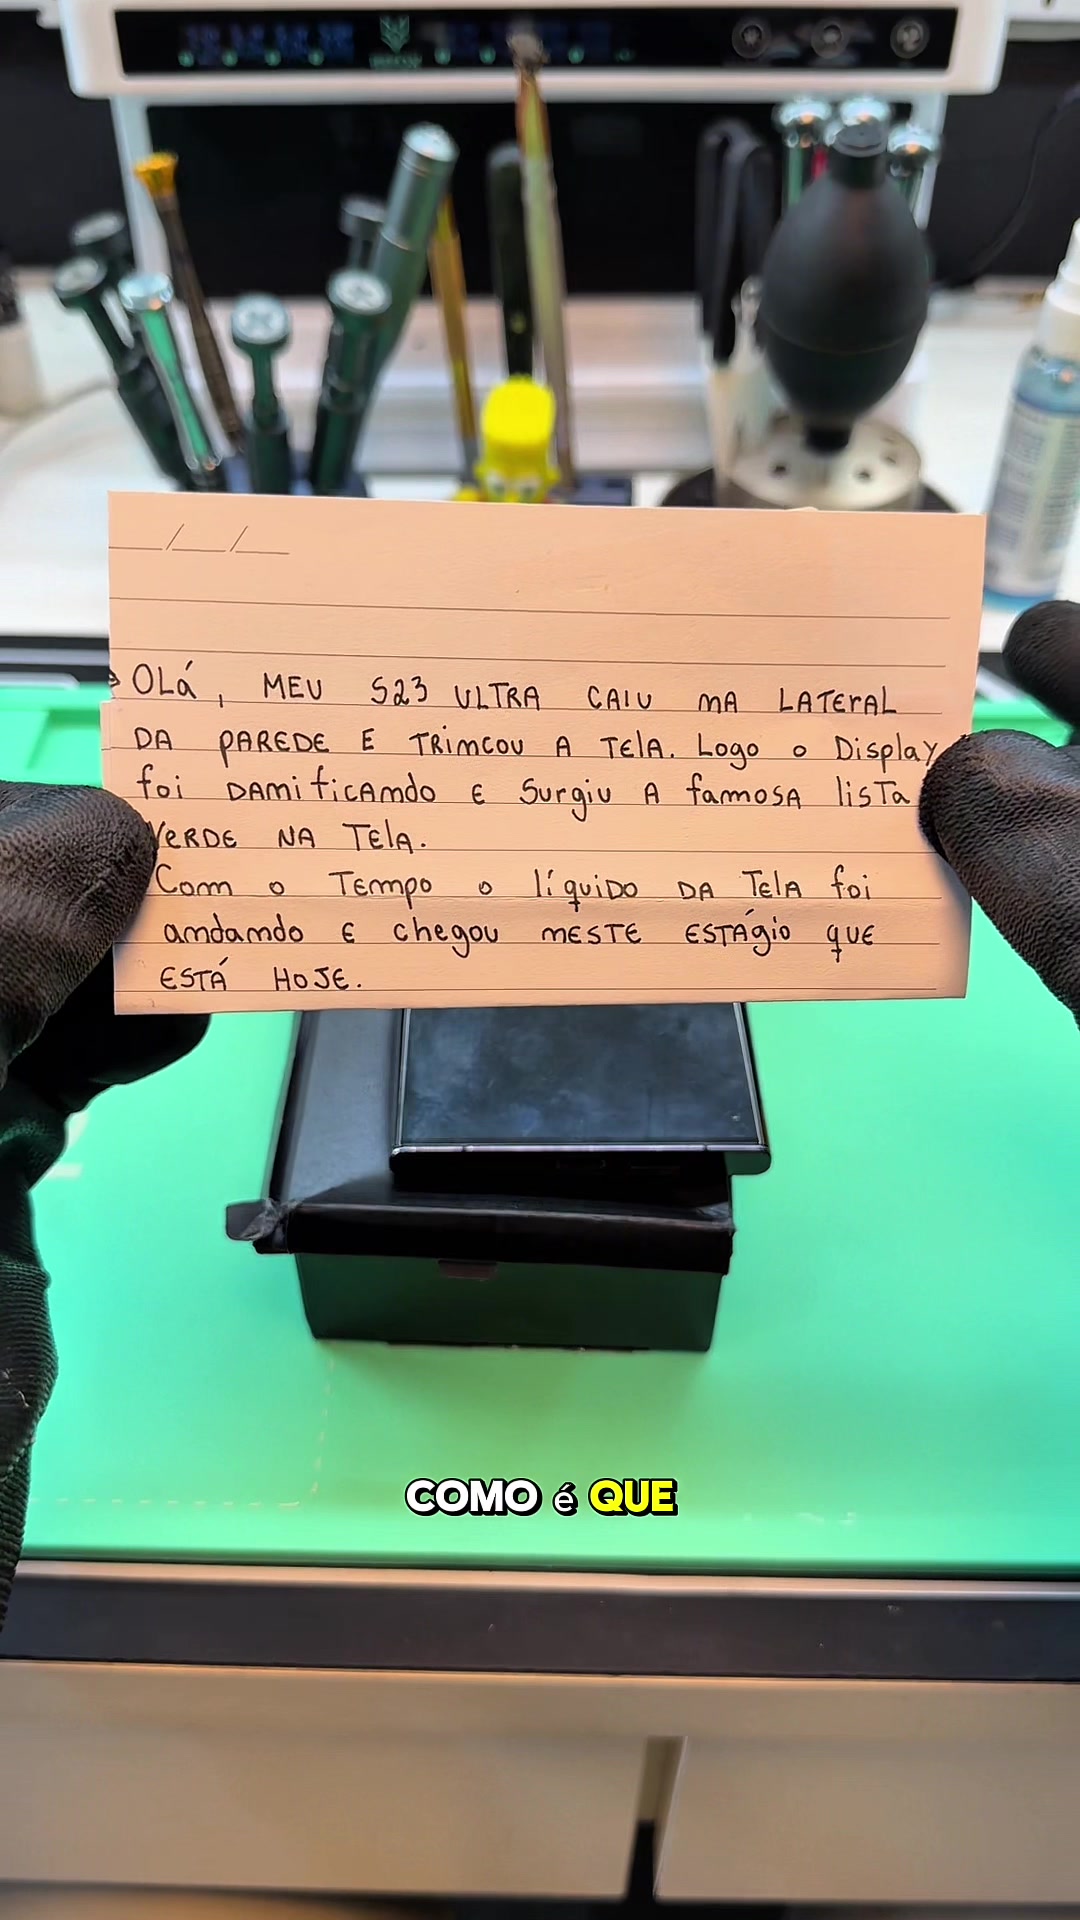 __/__/__
OLá, MEU S23 ULTRA CAIU NA LATERAL
DA PAREDE E TRINCOU A TELA. Logo o Display
foi DANIFICANDO E Surgiu A famosA lisTA
VERDE NA TELA.
Com o Tempo o líquiDO DA TELA foi
andando E chegou NESTE ESTÁgio que
ESTÁ HOJE.
COMO é QUE